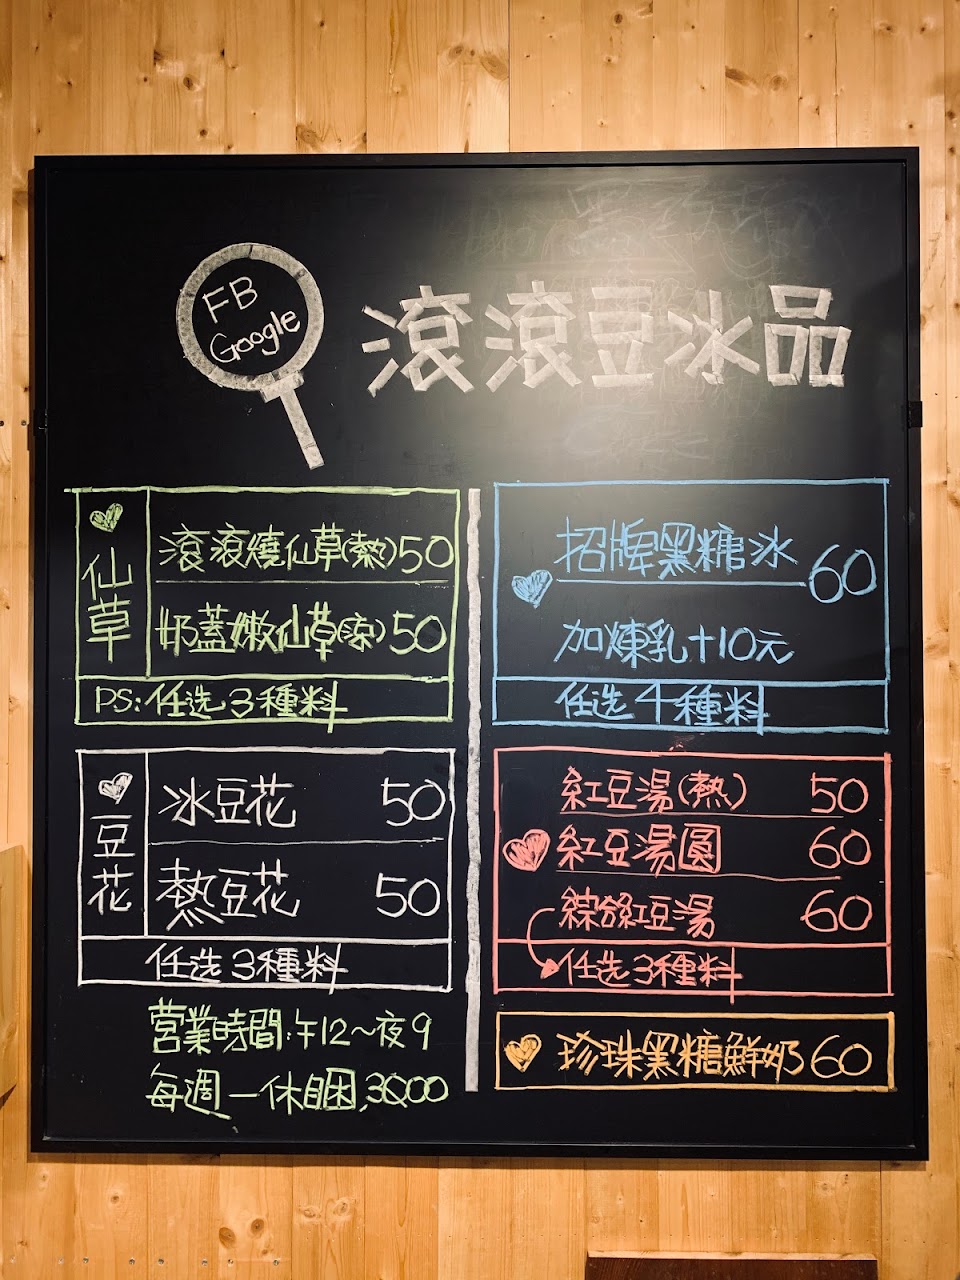 FB
Google
滾滾豆冰品
仙草
滾滾燒仙草(熱)50
奶蓋嫩仙草(涼)50
PS:任选3種料
豆花
冰豆花 50
熱豆花 50
任选3種料
营業時間:午12～夜9
每週一休睏,
招牌黑糖冰 60
加煉乳+10元
任选4種料
紅豆湯(熱) 50
紅豆湯圓 60
綜合紅豆湯 60
任选3種料
珍珠黑糖鮮奶60